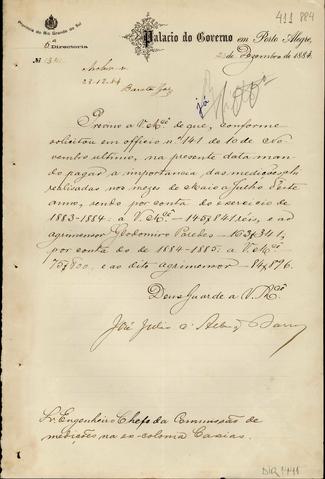 411 884
Provincia do Rio Grande do Sul
Directoria
Palacio do Governo em Porto Alegre,
de Dezembro de 1884
Nº
23-12-84
já
Previno a V. Mcê de que, conforme
solicitou em officio nº 141 de 10 de No
vembro ultimo, na presente data man
do pagar a importancia das medições
realisadas nos mezes de Maio a Julho deste
anno, sendo por conta do exercicio de
1883-1884: a V. Mcê 145$841 réis, e ao
agrimensor 163$341,
por conta do de 1884-1885: a V. Mcê
75$800, e ao dito agrimensor 84$896.
Deus Guarde a V. Mcê
José Julio d'Albuq Barros
Sr. Engenheiro Chefe da Commissão de
medições na ex-colonia Caxias.